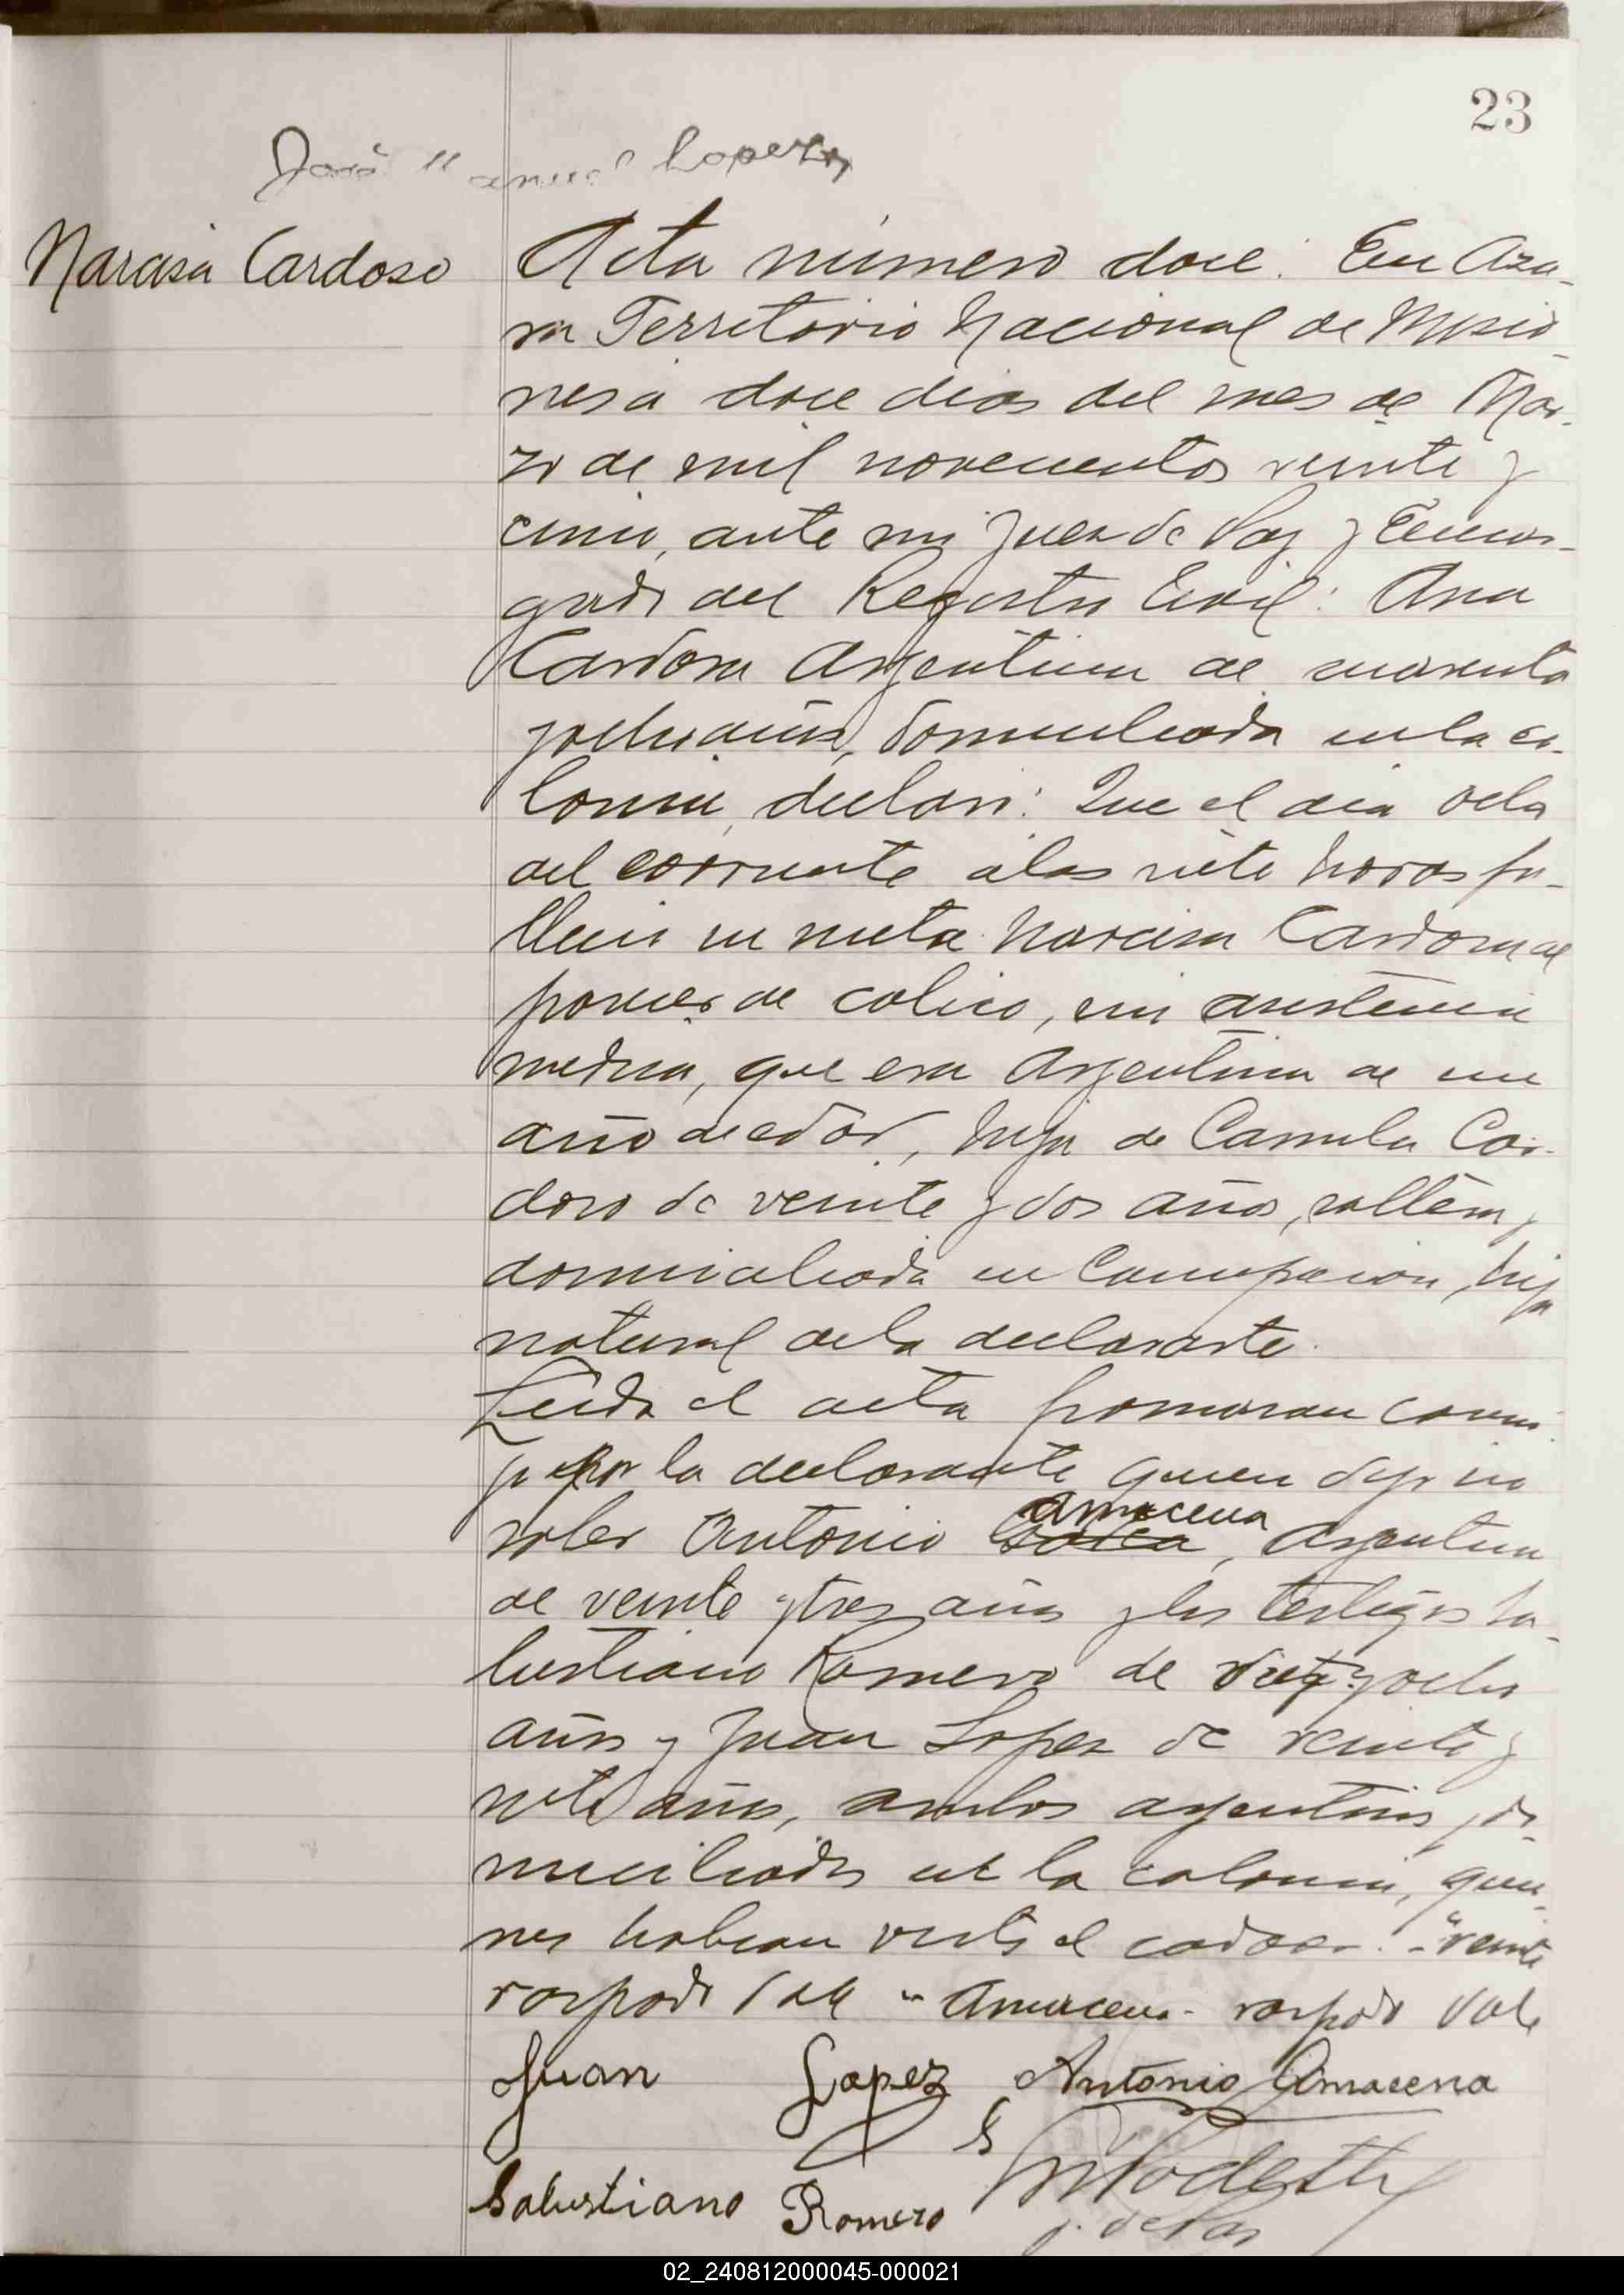 23
José Manuel Lopez
Narcisa Cardoso
Acta número doce: En Aza-
ra Territorio Nacional de Misio-
nes a doce dias del mes de Mar-
zo de mil novecientos veinte y
cinco, ante mi Juez de Paz y Encar-
gado del Registro Civil: Ana
Cardoso Argentina de cuarenta
y ocho años, domiciliada en la co-
lonia, declaró: Que el dia ocho
del corriente a las siete horas fa-
lleció su nieta Narcisa Cardoso al
parecer de colico, sin asistencia
medica, que era Argentina de un
año de edad, hija de Camila Car-
doso de veinte y dos años, soltera y
domiciliada en Concepcion, hija
natural de la declarante.
Leida el acta firmaron conmi
go por la declarante quien dijo no
saber Antonio Amacena, Argentino
de veinte y tres años y los testigos Sa-
lustiano Romero de diez y ocho
años y Juan Lopez de veinte y
siete años, ambos argentinos, do-
miciliados en la colonia, quie-
nes habian visto el cadaver. - "veinte
raspado vale " Amacena - raspado vale
Juan Lopez Antonio Amacena
Salustiano Romero
J. de Paz
02_240812000045-000021